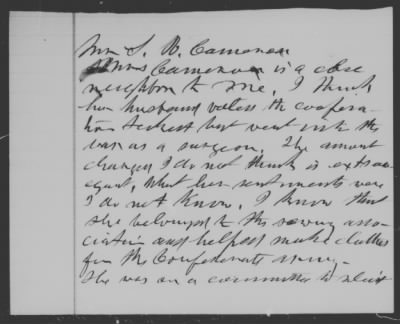 Mrs S. W. Cameron
Mrs Cameron is a close
neighbor to me, I think
her husband voted the coopera-
tion ticket but went into the
war as a surgeon. The amount
charged I do not think is extrav-
agant, What her sentiments were
I do not know, I know that
she belonged to the sewing asso-
ciation and helped make clothes
for the Confederate Army.
She was on a committee to